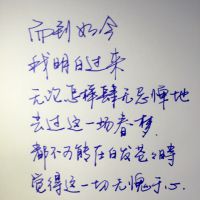 而到如今
我明白过来
无论怎样肆无忌惮地
去过这一场春梦
都不可能在白发苍苍时
觉得这一切无愧于心.